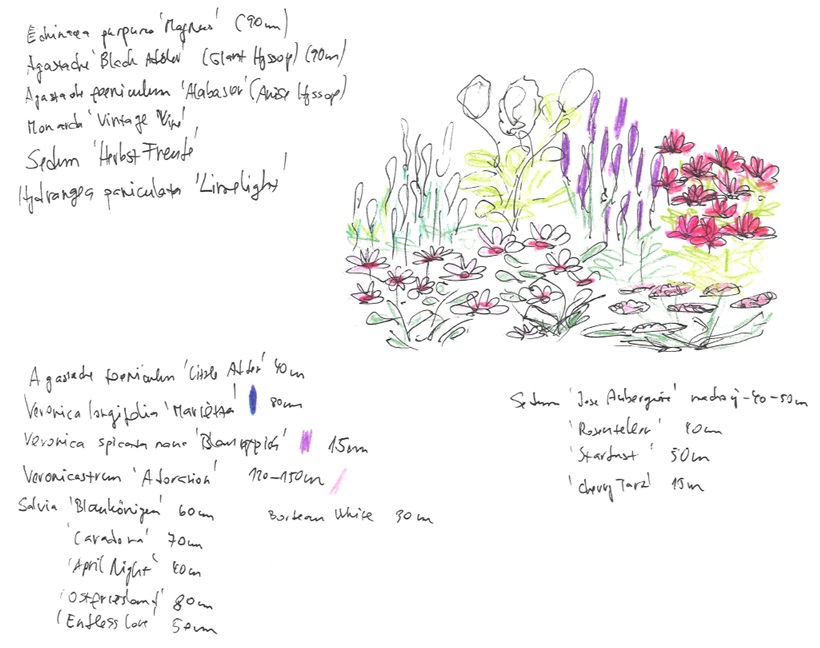 Echinacea purpurea 'Magnus' (90cm)
Agastache 'Black Adder' (Giant Hyssop) (90cm)
Agastache foeniculum 'Alabaster' (Anise Hyssop)
Monarda 'Vintage Wine'
Sedum 'Herbst Freude'
Hydrangea paniculata 'Limelight'
Agastache foeniculum 'Little Adder' 40cm
Veronica longifolia 'Marietta' 80cm
Veronica spicata nana 'Blauteppich' 15cm
Veronicastrum 'Adoration' 120-150cm
Salvia 'Blaukönigin' 60cm
Bordeau White 30cm
'Caradonna' 70cm
'April Night' 40cm
'Ostfriesland' 80cm
'Endless Love' 50cm
Sedum 'Jose Aubergine' 40-50cm
'Rosenteller' 40cm
'Stardust' 50cm
'Cherry Tart' 15cm